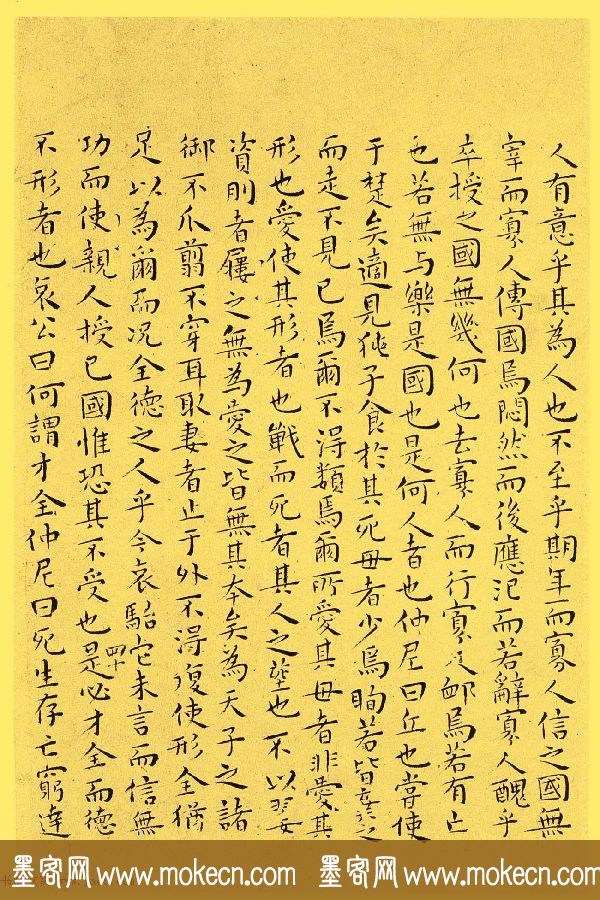 人有意乎其為人也不至乎期年而寡人信之國無
宰而寡人傳國焉悶然而後應氾而若辭寡人醜乎
卒授之國無幾何也去寡人而行寡人卹焉若有亡
也若無与樂是國也是何人者也仲尼曰丘也嘗使
于楚矣適見㹠子食於其死母者少焉眴若皆棄之
而走不見已焉爾不得類焉爾所愛其母者非愛其
形也愛使其形者也戰而死者其人之塟也不以翣
資刖者屨之無為愛之皆無其本矣為天子之諸
御不爪翦不穿耳取妻者止于外不得復使形全猶
足以為爾而況全德之人乎今哀駘它未言而信無
功而使親人授已國惟恐其不受也是必才全而德
四十
不形者也哀公曰何謂才全仲尼曰死生存亡窮達
墨客网 www.mokecn.com 墨客网 www.mokecn.com